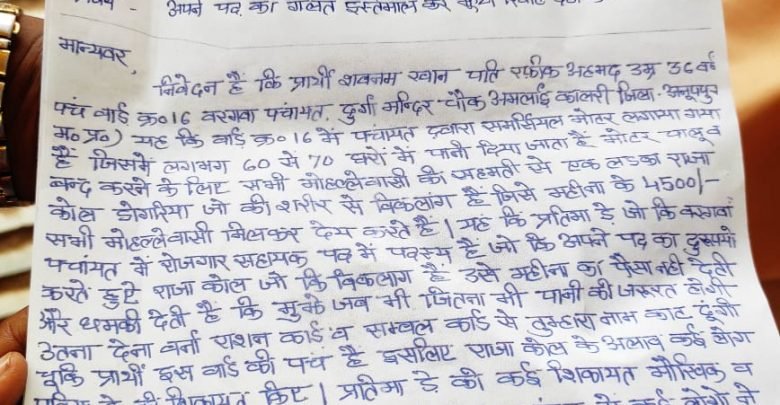 अपने पद का गलत इस्तेमाल कर
मान्यवर,
निवेदन है कि प्रार्थी शबनम खान पति रफीक अहमद उम्र 36 वर्ष
पंच वार्ड क्र० 16 बरगवा पंचायत, दुर्गा मन्दिर चौक अमलाई कालरी जिला - अनूपपुर
म० प्र०) यह कि वार्ड क्र० 16 में पंचायत द्वारा समर्सियल मोटर लगाया गया
है जिसमे लगभग 60 से 70 घरों में पानी दिया जाता है मोटर चालू व
बन्द करने के लिए सभी मोहल्लेवासी की सहमती से एक लडका राजा
कोल डोंगरिया जो की शरीर से विकलांग है जिसे महीना के 4500/-
सभी मोहल्लेवासी मिलकर देय करते है। यह कि प्रतिमा डे जो कि बरगवां
पंचायत में रोजगार सहायक पद में पदस्थ है जो कि अपने पद का
करते हुऐ राजा कोल जो कि विकलांग है उसे महीना का पैसा नही देती
और धमकी देती है कि मुझे जब भी जितना भी पानी की जरूरत होगी
उतना देना वर्ना राशन कार्ड व सम्बल कार्ड से तुम्हारा नाम काट दूंगी
चूकि प्रार्थी इस वार्ड की पंच है इसलिए राजा कोल के अलावा कई लोग
शिकायत किए। प्रतिमा डे की कई शिकायत मौखिक व